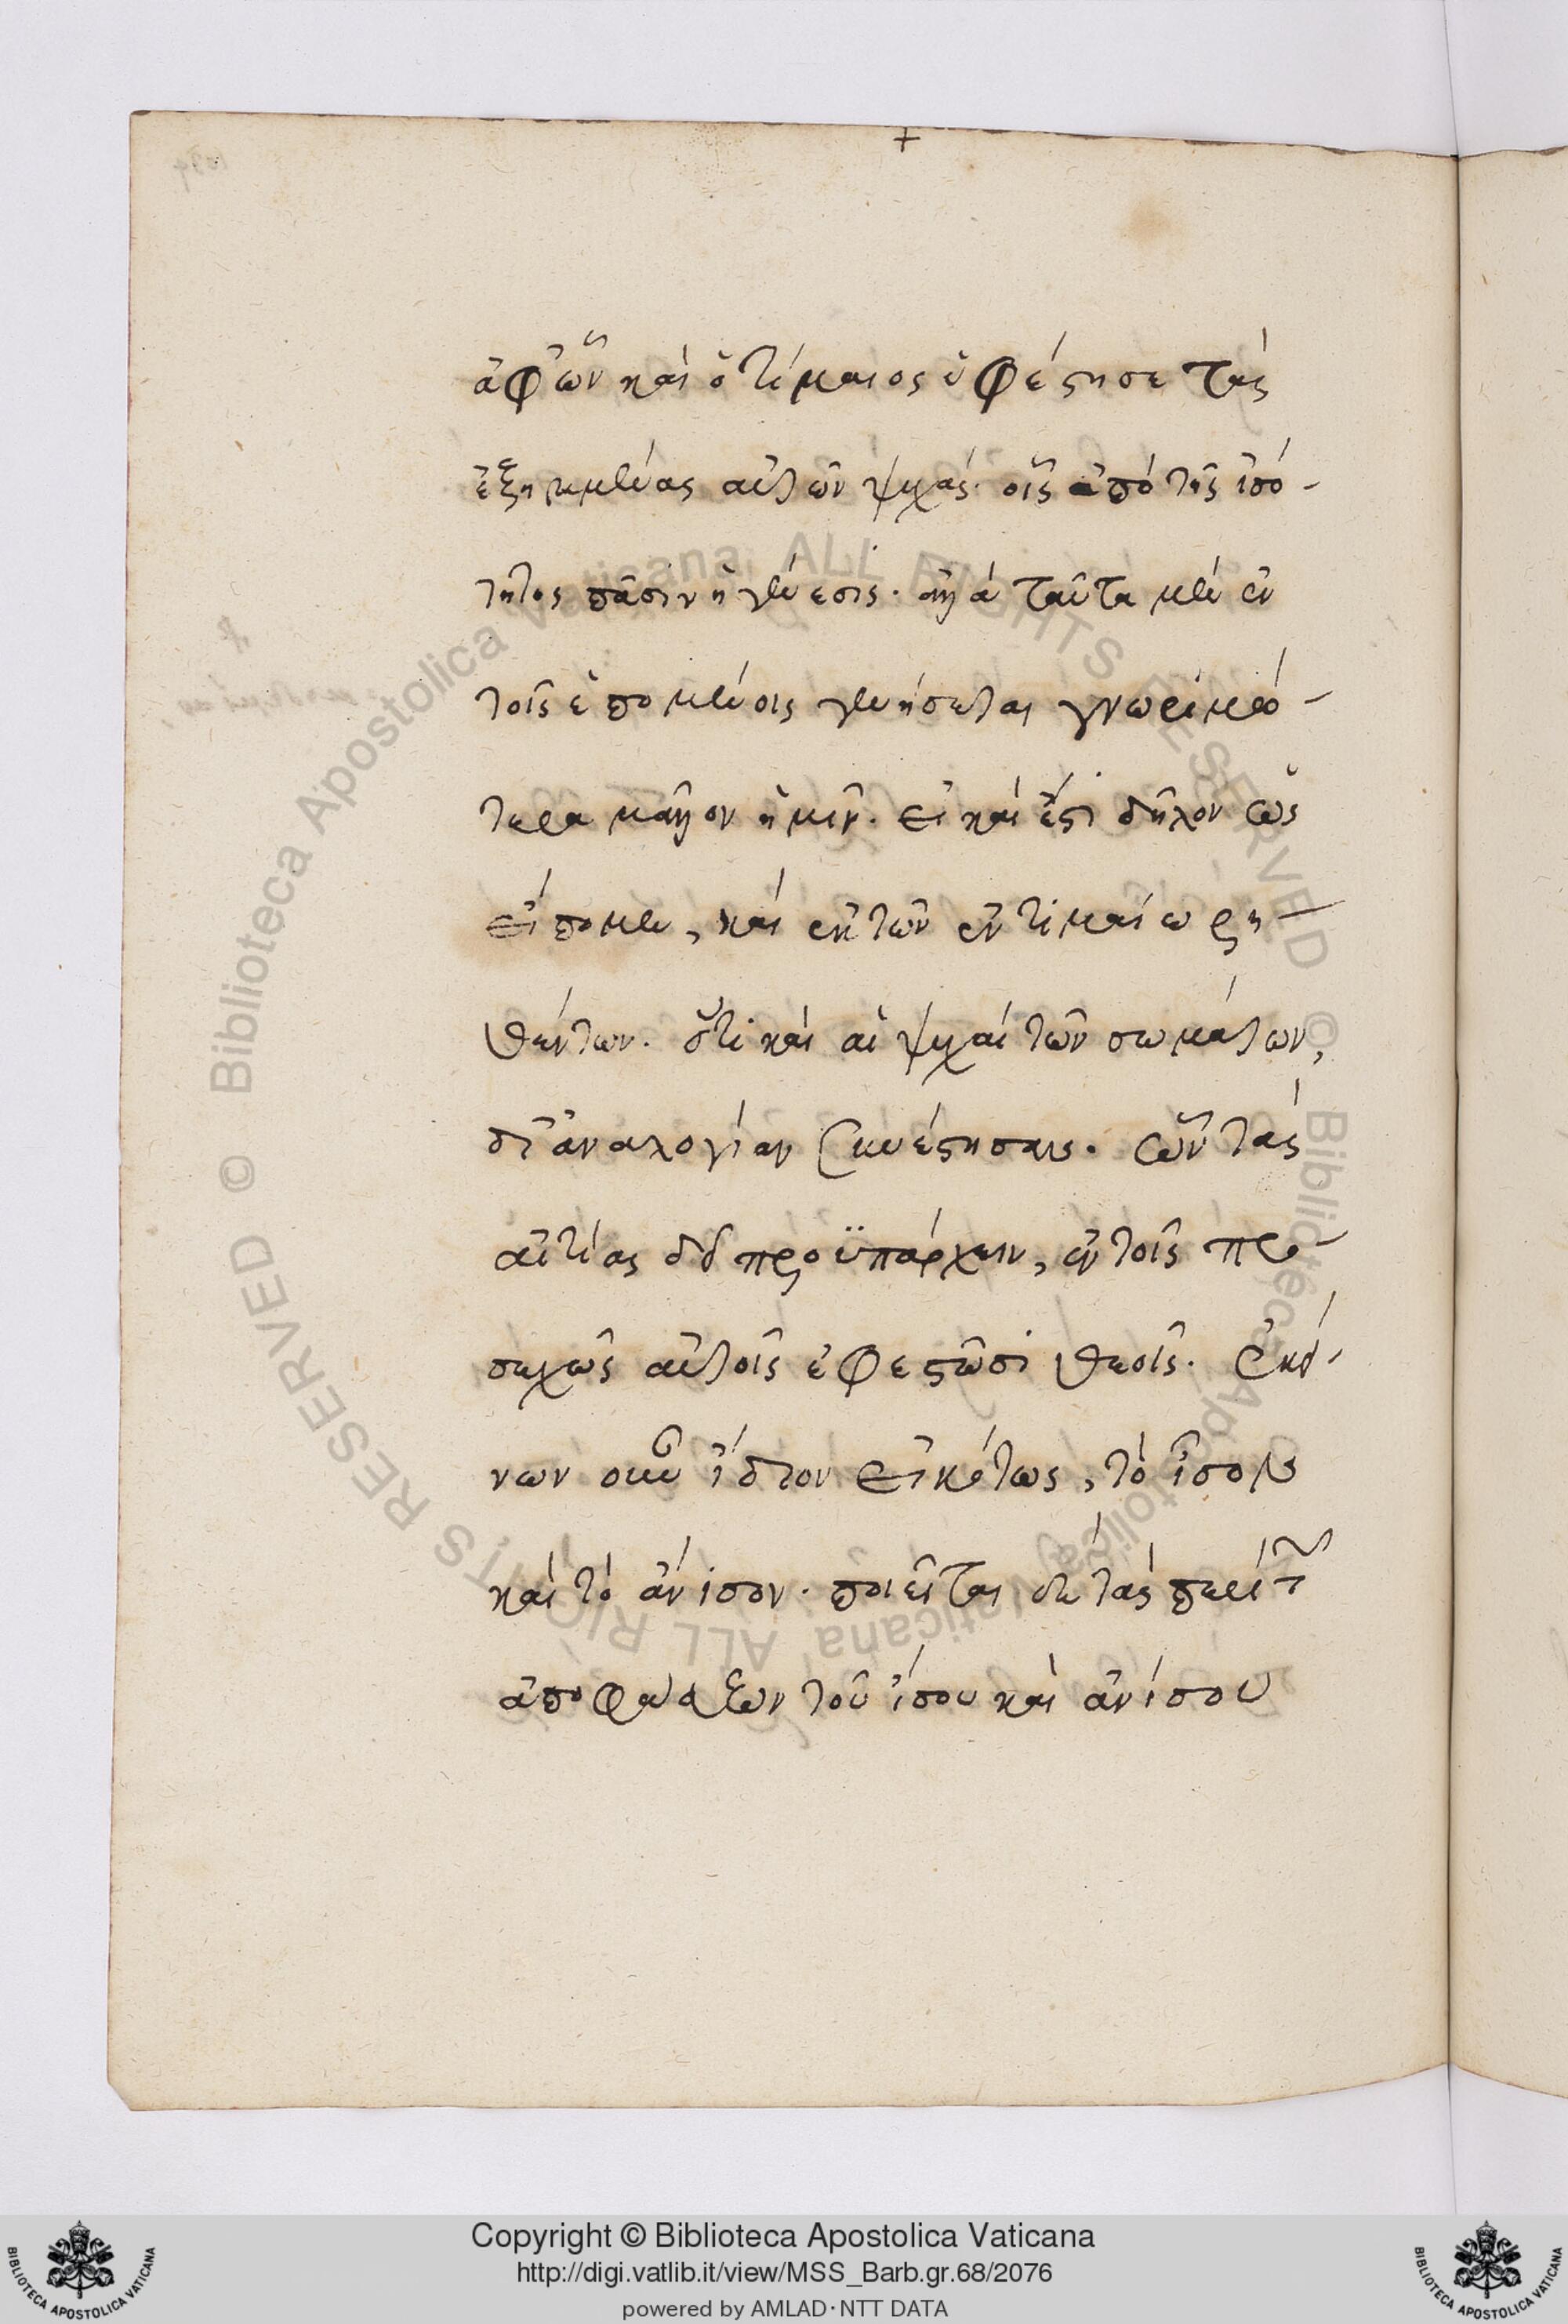 +
ἀφ' ὧν καὶ ὁ τίμαιος ὑφέστησε τὰς
ἐξηρημένας αὐτῶν ψυχάς· οἷς ἀπὸ τῆς ἰσό-
τητος πᾶσιν ἡ γένεσις. ἀλλὰ ταῦτα μὲν ἐν
τοῖς ἑπομένοις γενήσεται γνωριμώ-
τερα μᾶλλον ἡμῖν. εἰ καὶ ἔστι δῆλον ὡς
εἴπομεν, καὶ ἐκ τῶν ἐν τιμαίω ῥη-
θέντων. ὅτι καὶ αἱ ψυχαὶ τῶν σωμάτων,
δι' ἀναλογίαν συνέστησαν. ὧν τὰς
αἰτίας δεῖ προϋπάρχειν, ἐν τοῖς προ-
σεχῶς αὐτοῖς ἐφεστῶσι θεοῖς. ἐκεί-
νων οὖν ἴδιον εἰκότως, τὸ ἴσον
καὶ τὸ ἄνισον. ποιεῖται δὲ τὰς περὶ τ
ἀποφάσεων τοῦ ἴσου καὶ ἀνίσου
© Biblioteca Apostolica Vaticana ALL RIGHTS RESERVED © Biblioteca Apostolica Vaticana ALL RIGHTS RESERVED
BIBLIOTECA APOSTOLICA VATICANA
Copyright © Biblioteca Apostolica Vaticana
http://digi.vatlib.it/view/MSS_Barb.gr.68/2076
powered by AMLAD·NTT DATA
BIBLIOTECA APOSTOLICA VATICANA